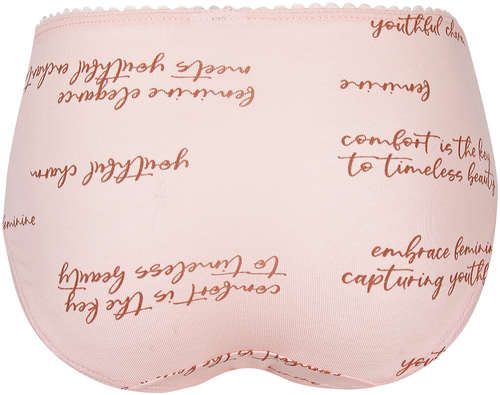 youthful charm
feminine elegance
meets youthful enchant
feminine
comfort is the key
to timeless beauty
youthful charm
feminine
embrace feminin
capturing youthf
comfort is the key
to timeless beauty
youthful
comfort is the